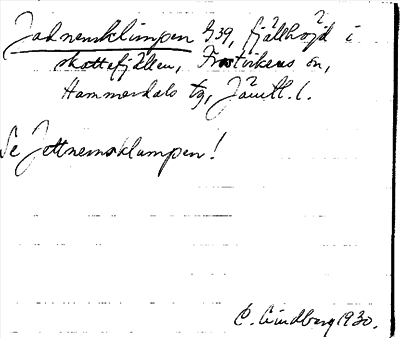 Jadnemsklimpen G39, fjällhöjd i
skattefjällen, Frostvikens sn,
Hammerdals tg, Jämtl. l.
Se Jettnemsklumpen!
C. Lindberg 1930.